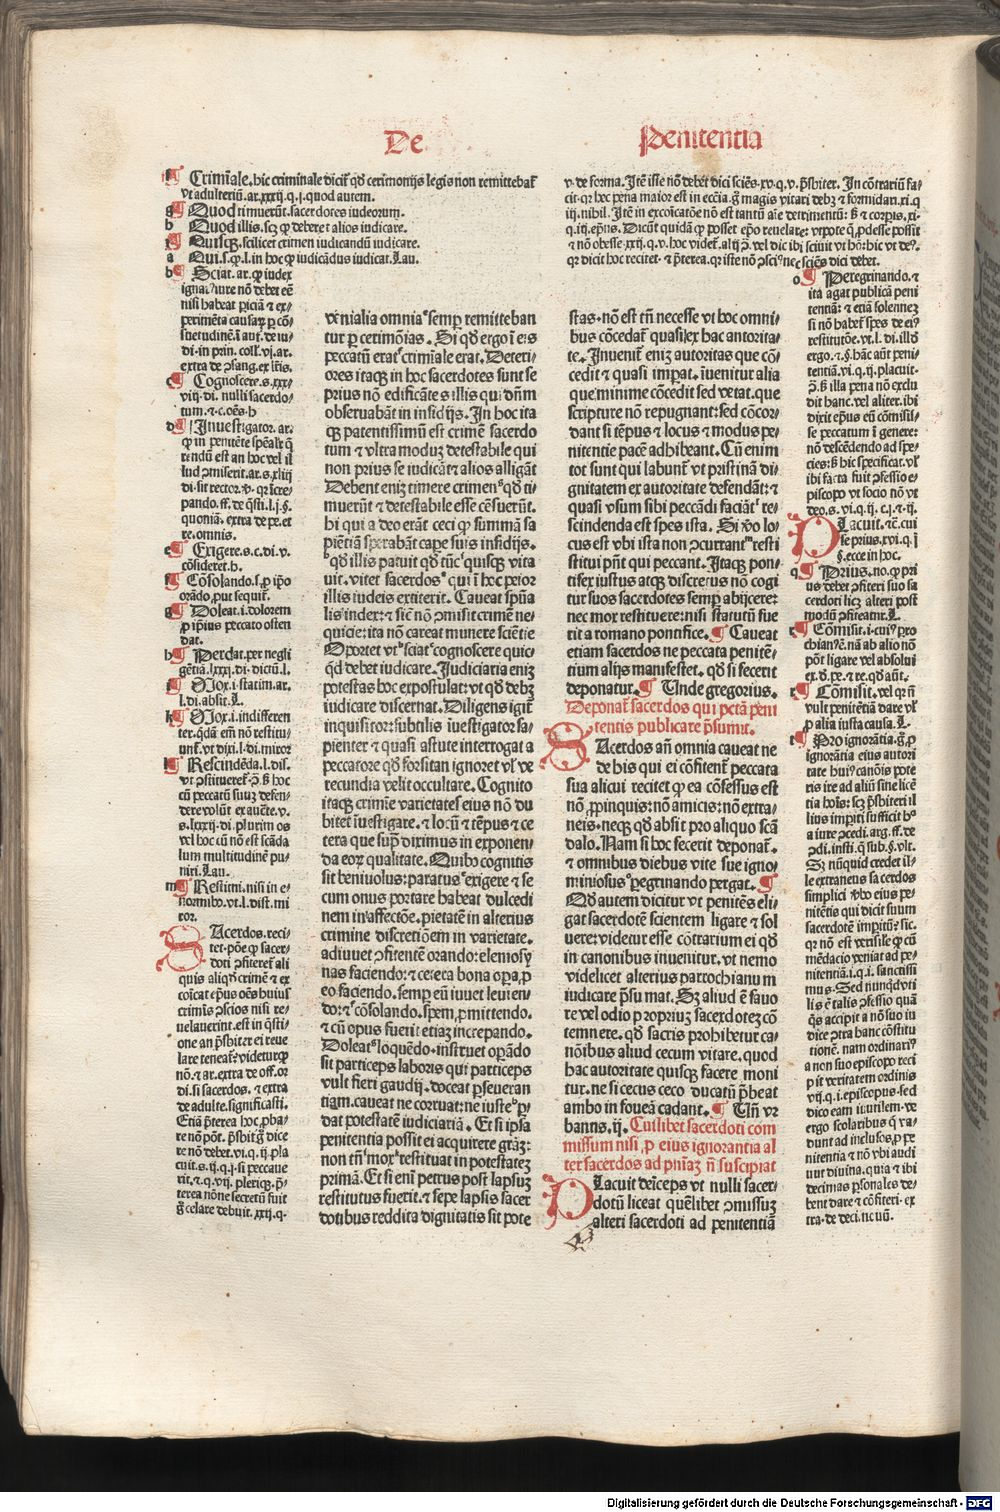 De Penitentia
f Crimīale. hic criminale dicit̃ qd̃ cerimonijs legis non remittebat̃
vt adulteriũ. ar. xxxij. q. j. quod autem.
g Quod timuerũt. sacerdotes iudeorum.
b Quod illis. scꝫ ꝙ deberet alios iudicare.
Quisqꝫ. scilicet crimen iudicandũ iudicare.
a Qui. s. ꝙ. l. in hoc ꝙ iudicãdus iudicat. Lau.
b Sciat. ar. ꝙ iudex
nisi habeat
extra de
c Cognoscere. s. xxx.
viij. di. nulli sacerdo-
tum. ⁊. c. oẽs. h
d Inuestigator. ar.
pando. ff. de
re. omnis.
e Exigere. s. c. di. v.
cõsideret. h.
f Cõsolando. s. ꝓ ip̃o
orãdo, put sequit̃.
g Doleat. i. dolorem
ꝓ ip̃ius peccato osten
dat.
h Perdat. per negli
gẽtiã. lxxxj. di. dictũ. l.
i Mox. i. statim. ar.
l. di. absit. L.
k Mox. i. indifferen
ter. qdã em̃ nõ restitu
unt̃. vt dixi. l. di. miror
l Rescindẽda. l. dis.
cũ peccatũ suuꝫ defen
dere volũt ex aucte. v.
s. lxxxij. di. plurimos
vel hoc cũ nõ est scãda
lum multitudinẽ pu-
niri. Lau.
m Restitui. nisi in e-
normibꝰ. vt. l. dist. mi
ror.
Sacerdos. reci-
tet. põe ꝙ sacer-
doti ꝯfiteret̃ ali
quis aliqd̃ crimẽ ⁊ ex
cõicat ep̃us oẽs huius
crimis ꝯscios nisi re-
uelauerint. est in q̃sti-
one an p̃sbiter ei reue
lare teneat̃? videtur ꝙ
nõ. ⁊ ar. extra de off. or
di. si sacerdos. ⁊ extra
de adulte. significasti.
Etiã p̃terea hoc, pba-
re nõ põt. p̃sbit̃ q̃ dice
re nõ debet. vi. q. ij. pla
cuit. s. ij. q. j. si peccaue
rit. ⁊. q. vij. plerique. p̃-
terea nõne secretũ fuit
q̃ celare debuit. xxij. q.
venialia omnia semꝑ remitteban
tur ꝑ cerimõias. Si qd̃ ergo ĩ eis
peccatũ erat crimĩale erat. Deteri-
ores itaqꝫ in hoc sacerdotes sunt se
prius nõ edificãtes illis qui dñm
obseruabãt in insidijs. In hoc ita
qꝫ patentissimũ est crimẽ sacerdo
tum ⁊ vltra moduꝫ detestabile qui
non prius se iudicãt ⁊ alios alligãt
Debent enīꝫ timere crimen qd̃ ti-
muerũt ⁊ detestabile esse cẽsuerũt.
hi qui a deo erãt ceci ꝙ summã sa
piẽtiã sperabãt cape suis insidijs.
qd̃ illis patuit qd̃ tũc quisqꝫ vita
uit. vitet sacerdos qui ĩ hoc peior
illis iudeis extiterit. Caueat spũa
lis iudex: ⁊ sic̃ nõ ꝯmisit crimẽ ne-
quicie: ita nõ careat munere sciẽtie
Oportet vt sciat cognoscere quic-
qd̃ debet iudicare. Judiciaria enīꝫ
potestas hoc expostulat: vt qd̃ debꝫ
iudicare discernat. Diligens igit̃
inquisitor: subtilis ĩuestigator sa-
pienter ⁊ quasi astute interrogat a
peccatore qd̃ forsitan ignoret vl̃ ve
recundia velit occultare. Cognito
itaqꝫ crimĩe varietates eius nõ du
bitet ĩuestigare. ⁊ locũ ⁊ tẽpus ⁊ ce
tera que supͣ diximus in exponen-
da eoꝝ qualitate. Quibꝰ cognitis
sit beniuolus: paratus exigere ⁊ se
cum onus portare habeat dulcedi
nem in affectõe. pietatẽ in alterius
crimine discretiõem in varietate.
adiuuet ꝯfitentẽ orando: elemosy
nas faciendo: ⁊ cetera bona opa, p
eo faciendo. semꝑ eũ iuuet leuien-
do: ⁊ cõsolando. spem, pmittendo.
⁊ cũ opus fuerit etiaꝫ increpando.
Doleat loquẽdo. instruet opãdo
sit particeps laboris qui particeps
vult fieri gaudij. doceat pseueran
tiam. caueat ne corruat: ne iuste ꝑ
dat potestatẽ iudiciariã. Et si ipsa
penitentia possit ei acquirere grãꝫ:
non tñ mox restituat in potestateꝫ
primã. Et si eni petrus post lapsuꝫ
restitutus fuerit. ⁊ sepe lapsis sacer
dotibus reddita dignitatis sit pote
v. de forma. Itẽ iste nõ debet dici sciẽs. xv. q. v. p̃sbiter. In cõtrariũ fa-
cit. qꝛ hec pena maior est in ecc̃ia. q̃ magis vitari debꝫ ⁊ formidari. xi. q
iij. nihil. Itẽ in excoicatõe nõ est tantũ aĩe detrimentũ: ꝫ ⁊ corpĩs. xi.
q. iij. ep̃us. Dicũt quidã ꝙ posset ep̃o reuelare: vtpote q, pdesse possit
⁊ nõ obesse. xxij. q. v. hoc videt̃.
qꝛ dicit hoc recitet. ⁊ p̃terea. qꝛ iste nõ ꝯsci nec sciẽs dici debet.
stas. nõ est tñ necesse vt hoc omni-
bus cõcedat̃ quasi ex hac antorita-
te. Inuenit̃ enīꝫ autoritas que cõ-
cedit ⁊ quasi imꝑat. ĩuenitur alia
que minime cõcedit sed vetat. que
scripture nõ repugnant: sed cõcor-
dant si tẽpus ⁊ locus ⁊ modus pe-
nitentie pacẽ adhibeant. Cũ enim
tot sunt qui labunt̃ vt pristinã di-
gnitatem ex autoritate defendãt: ⁊
quasi vsum sibi peccãdi faciãt re-
scindenda est spes ista. Si ṽo lo-
cus est vbi ista non ꝯcurrant resti
stitui pñt qui peccant. Itaqꝫ pon-
tifex iustus atqꝫ discretus nõ cogi
tur suos sacerdotes semꝑ abijcere:
nec mox restituere: nisi statutũ fue
rit a romano pontifice. ¶ Caueat
etiam sacerdos ne peccata penitẽ-
tium alijs manifestet. qd̃ si fecerit
deponatur. ¶ Unde gregorius.
Deponat̃ sacerdos qui pctã peni
tentis publicare p̃sumit.
Sacerdos añ omnia caueat ne
de his qui ei cõfitent̃ peccata
sua alicui recitet ꝙ ea cõfessus est
nõ, ꝓpinquis: nõ amicis: nõ extra-
neis. neqꝫ qd̃ absit pro aliquo scã
dalo. Nam si hoc fecerit deponat̃.
⁊ omnibus diebus vite sue igno-
miniosus ꝑegrinando pergat. ¶
Qd̃ autem dicitur vt penitẽs eli-
gat sacerdotẽ scientem ligare ⁊ sol
uere: videtur esse cõtrarium ei qd̃
in canonibus inuenitur. vt nemo
videlicet alterius parrochianum
iudicare p̃sumat. Sꝫ aliud ẽ fauo
re vel odio propriuꝫ sacerdoteꝫ cõ
temnere. qd̃ sacris prohibetur ca-
nõibus aliud cecum vitare. quod
hac autoritate quisqꝫ facere moni
tur. ne si cecus ceco ducatũ p̃beat
ambo in foueã cadant. ¶ Uñ vr
banꝰ. ij. Cuilibet sacerdoti com
missum nisi, p eius ignorantia al
ter sacerdos ad pñiaꝫ ñ suscipiat
Placuit deĩceps vt nulli sacer-
dotũ liceat quẽlibet ꝯmissuꝫ
alteri sacerdoti ad penitentiã
o Peregrinando. ⁊
ita agat publicã peni
tentiã: ⁊ etiã solennez
si nõ habet̃ spes de eiꝰ
restitutõe. vt. l. di. illd̃
ergo. ⁊. §. hãc aũt peni-
tentiã. vi. q. ij. placuit.
dit hanc. vel aliter. ibi
dixit ep̃us eũ cõmisis-
se peccatum ĩ genere:
nõ descẽdendo ad spe-
cies: ꝫ hic specificat. vl̃
ibi facta fuit ꝯfessio e-
piscopo vt socio nõ vt
deo. s. vi. q. ij. c. j. ⁊. ij.
Placuit. ⁊c. cui
se prius. xvi. q. j
§. ecce in hoc.
q Prius. no. ꝙ pri
us debet ꝯfiteri suo sa
cerdoti licꝫ alteri post
modũ ꝯfiteatur. L.
r Cõmisit. i. cuiꝰ pro
chianꝰ ẽ. nã ab alio nõ
põt ligare vel absolui
ex. d. pe. ⁊ re. qd̃ aũt.
s Cõmisit. vel qꝛ ñ
vult penitẽtiã dare vl̃
ꝓ alia iusta causa. L.
t Pro ignorãtia. q̃, p
ignorãtia eius autori
tate huiꝰ canõis pote
ris ire ad aliũ sine licẽ
lius imp̃iti sufficit hꝰ
a iure ꝯcedi. arg. ff. de
ꝯdi. insti. q̃ sub. §. vlt.
Sꝫ nũquid credet il-
le extraneus sacerdos
simplici ṽbo eius pe-
nitẽtis qui dicit suum
sacerdotẽ imp̃itũ? sic.
qꝛ nõ est verisile ꝙ cũ
mẽdacio veniat ad pe-
nitentiã. i. q. i. sanctissi
mus. Sed nunqd̃ vti
lis ẽ talis ꝯfessio quã
q̃s accipit a nõ suo iu
dice ꝯtra hanc cõstitu
tionẽ. nam ordinariꝰ
a non suo episcopo reci
pit veritatem ordinis
vij. q. i. episcopus. sed
dico eam inutilem. ve
ergo scolaribus q̃ va-
dunt ad inclusos, p pe
nitentia ⁊ nõ vbi audi
unt diuina. quia ⁊ ibi
decimas ꝑsonales de-
bent dare ⁊ cõfiteri. ex
tra. de deci.
Digitalisierung gefördert durch die Deutsche Forschungsgemeinschaft - DFG